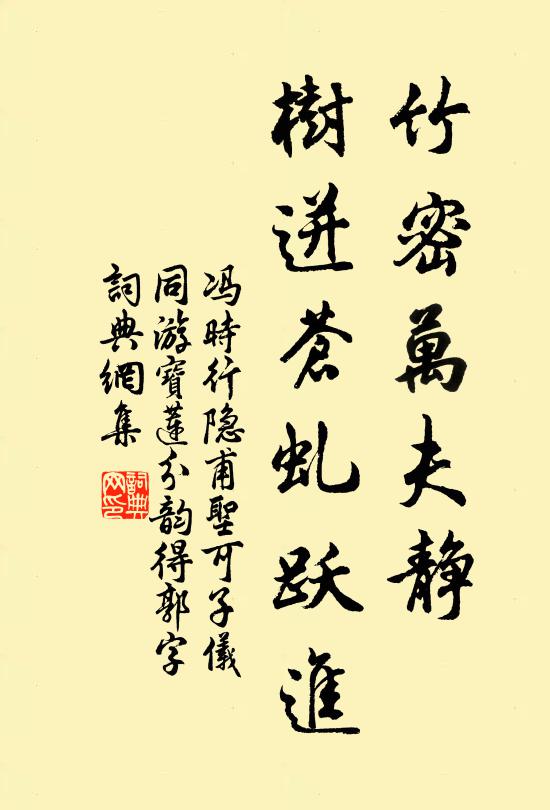 竹密萬夫静
樹迸蒼虬跃進
冯時行隐甫聖可子儀
同游寶蓮分韵得郭字
詞典網集
詞典網印